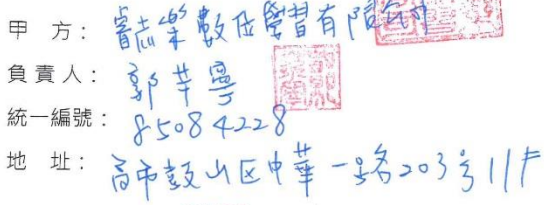 甲 方： 睿志樂數位學習有限公司
負責人： 郭芊寧
統一編號： 85084228
地 址： 高市鼓山区中華一路203号11F